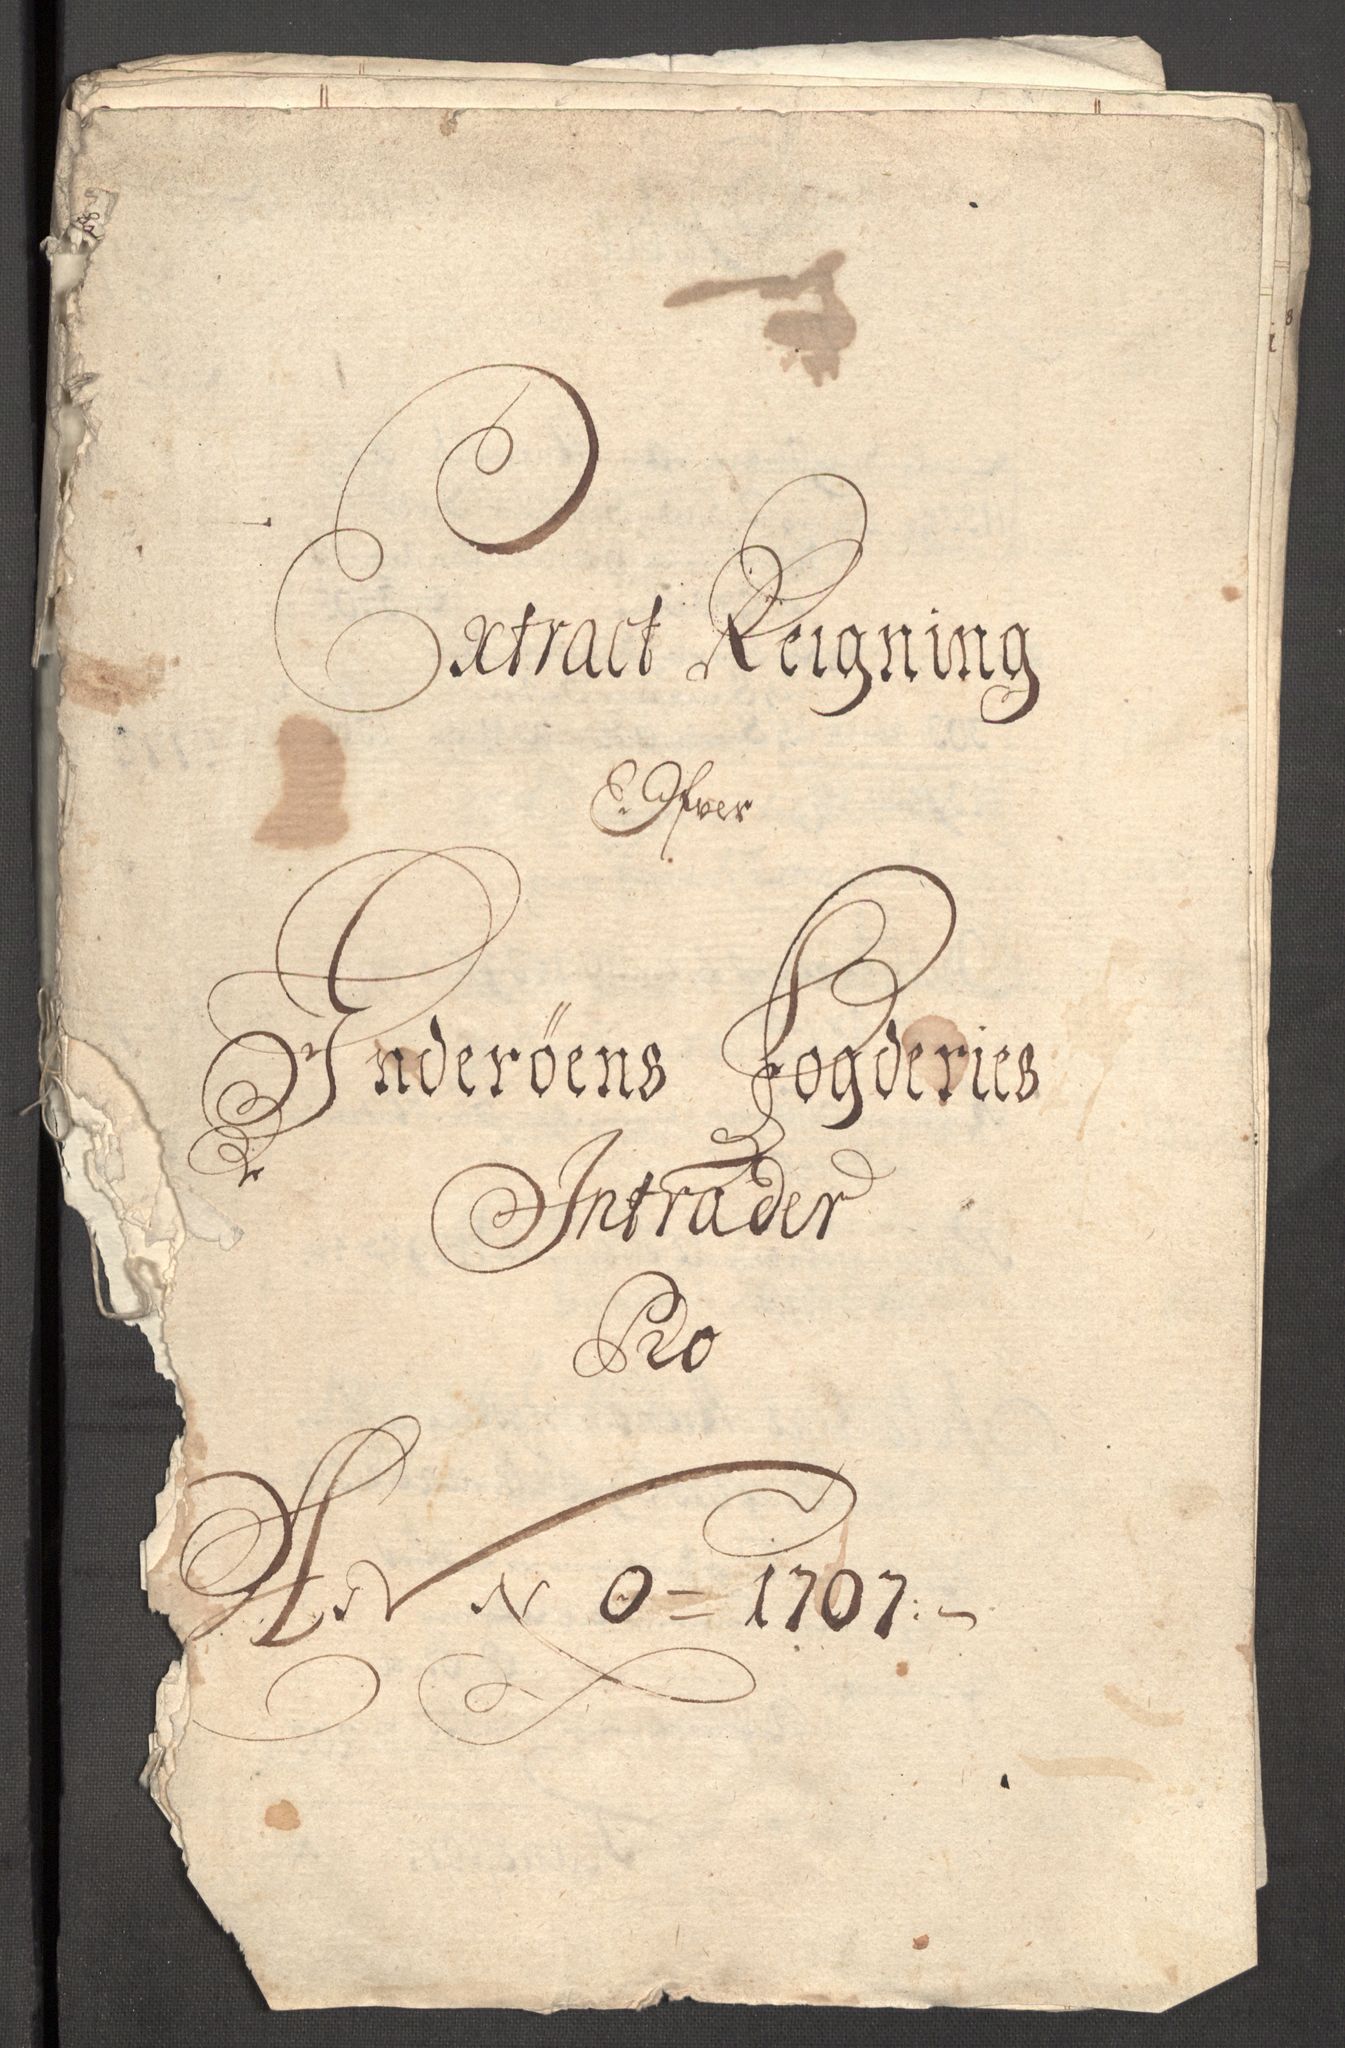 Extract Reigning
Ofver
Inderöens Fogderies
Intrader
Pro
ANNO = 1707:-